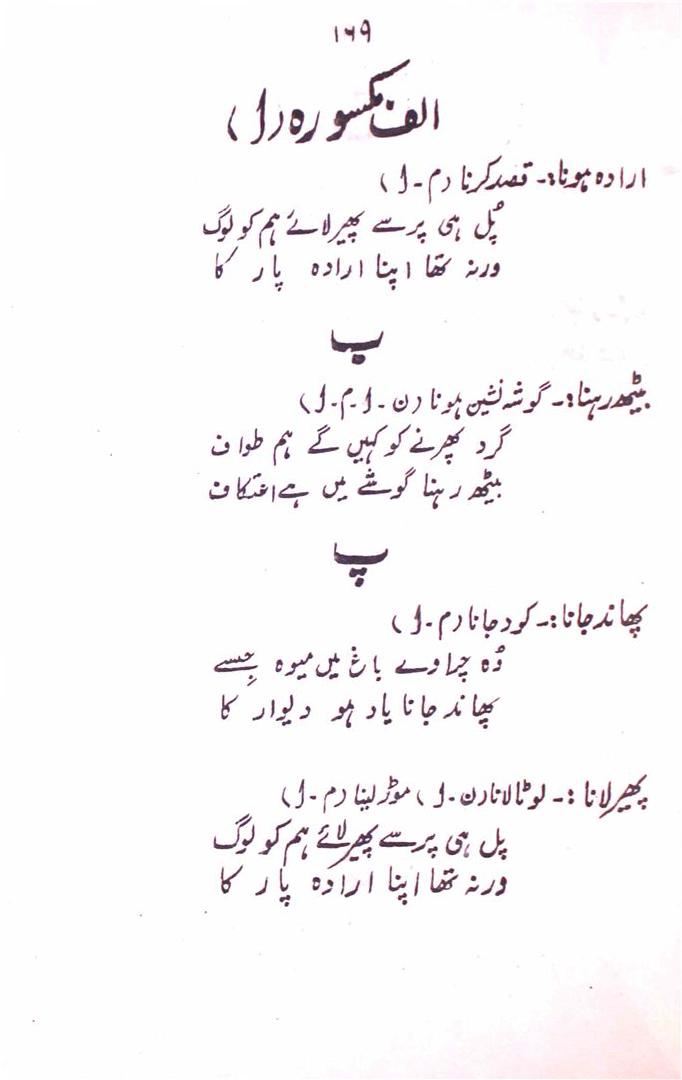 ۱۶۹
الف مکسورہ (اِ)
ارادہ ہونا:۔ قصد کرنا (م۔ اِ)
پُل ہی پر سے پھیر لائے ہم کو لوگ
ورنہ تھا اپنا ارادہ پار کا
ب
بیٹھ رہنا:۔ گوشہ نشین ہونا (ن۔ اِ۔ م۔ اِ)
گرد پھرنے کو کہیں گے ہم طواف
بیٹھ رہنا گوشے میں ہے اعتکاف
پ
پھاند جانا:۔ کود جانا (م۔ اِ)
وُہ چراوے باغ میں میوہ جِسے
پھاند جانا یاد ہو دیوار کا
پھیر لانا:۔ لوٹا لانا (ن۔ اِ) موڑ لینا (م۔ اِ)
پل ہی پر سے پھیر لائے ہم کو لوگ
ورنہ تھا اپنا ارادہ پار کا